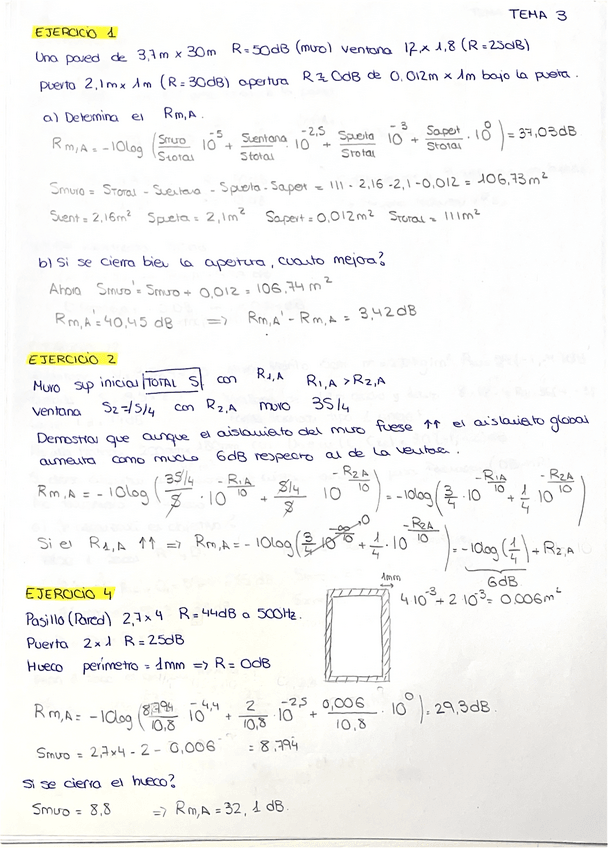 TEMA 3
EJERCICIO 1
Una pared de 3,7m x 30m R=50dB (muro) ventana 12 x 1,8 (R=25dB)
puerta 2,1m x 1m (R=30dB) apertura R≈0dB de 0,012m x 1m bajo la puerta.
a) Determina el Rm,A.
Rm,A = -10log (Smuro/Stotal 10^-5 + Sventana/Stotal · 10^-2,5 + Spuerta/Stotal 10^-3 + Sapert/Stotal · 10^0) = 37,03dB
Smuro = Stotal - Sventana - Spuerta - Sapert = 111 - 2,16 - 2,1 - 0,012 = 106,73m²
Svent = 2,16m² Spuerta = 2,1m² Sapert = 0,012m² Stotal = 111m²
b) Si se cierra bien la apertura, cuanto mejora?
Ahora Smuro' = Smuro + 0,012 = 106,74m²
Rm,A' = 40,45 dB => Rm,A' - Rm,A = 3,42dB
EJERCICIO 2
Muro sup inicial TOTAL S con R1,A R1,A > R2,A
ventana S2=/S/4 con R2,A muro 3S/4
Demostrar que aunque el aislamiento del muro fuese ↑↑ el aislamiento global
aumenta como mucho 6dB respecto al de la ventana.
Rm,A = -10log (3S/4/S · 10^-R1A/10 + S/4/S 10^-R2A/10) = -10log (3/4 · 10^-R1A/10 + 1/4 10^-R2A/10)
Si el R1,A ↑↑ => Rm,A = -10log (3/4 10^-∞/10 →0 + 1/4 · 10^-R2A/10) = -10log (1/4) + R2,A
6dB
EJERCICIO 4
1mm
4 10^-3 + 2 10^-3 = 0.006m²
Pasillo (Pared) 2,7x4 R=44dB a 500Hz.
Puerta 2x1 R=25dB
Hueco perímetro = 1mm => R=0dB
Rm,A = -10log (8,794/10,8 10^-4,4 + 2/10,8 · 10^-2,5 + 0,006/10,8 · 10^0) = 29,3dB.
Smuro = 2,7x4 - 2 - 0,006 = 8,794
Si se cierra el hueco?
Smuro = 8,8 => Rm,A = 32,1 dB.